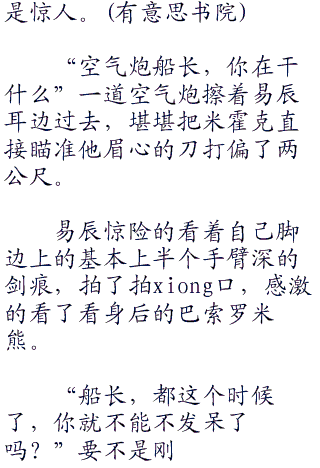 是惊人。(有意思书院)
“空气炮船长，你在干
什么”一道空气炮擦着易辰
耳边过去，堪堪把米霍克直
接瞄准他眉心的刀打偏了两
公尺。
易辰惊险的看着自己脚
边上的基本上半个手臂深的
剑痕，拍了拍xiong口，感激
的看了看身后的巴索罗米
熊。
“船长，都这个时候
了，你就不能不发呆了
吗？”要不是刚